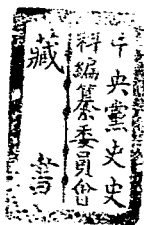 中央黨史史
料編纂委員會
藏書